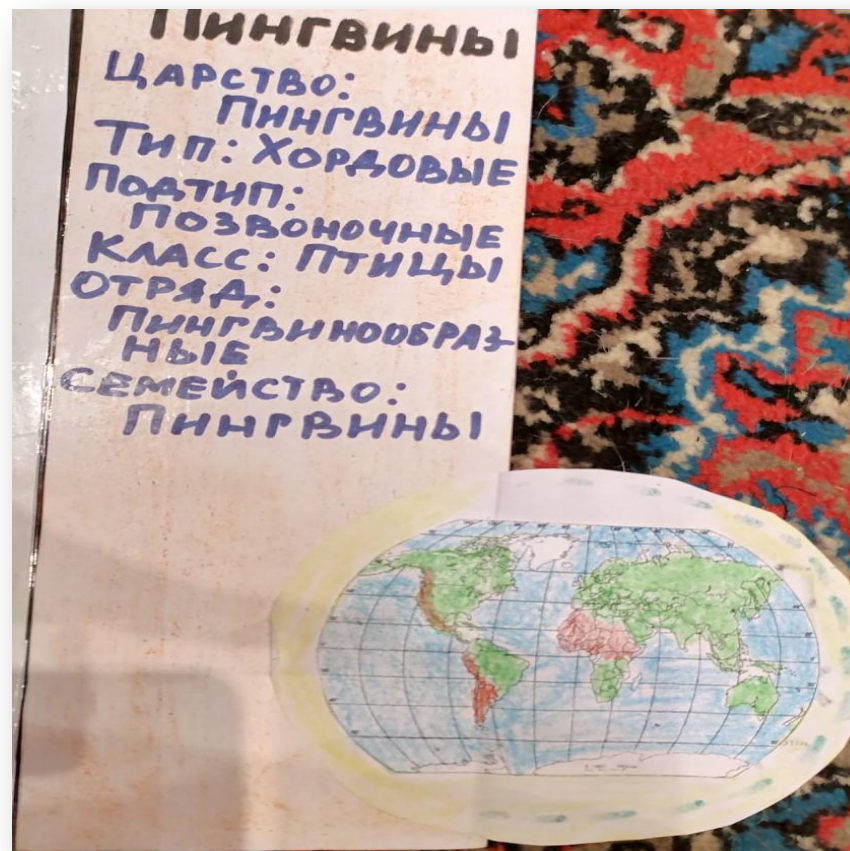 ПИНГВИНЫ
ЦАРСТВО:
ПИНГВИНЫ
ТИП: ХОРДОВЫЕ
ПОДТИП:
ПОЗВОНОЧНЫЕ
КЛАСС: ПТИЦЫ
ОТРЯД:
ПИНГВИНООБРАЗ-
НЫЕ
СЕМЕЙСТВО:
ПИНГВИНЫ